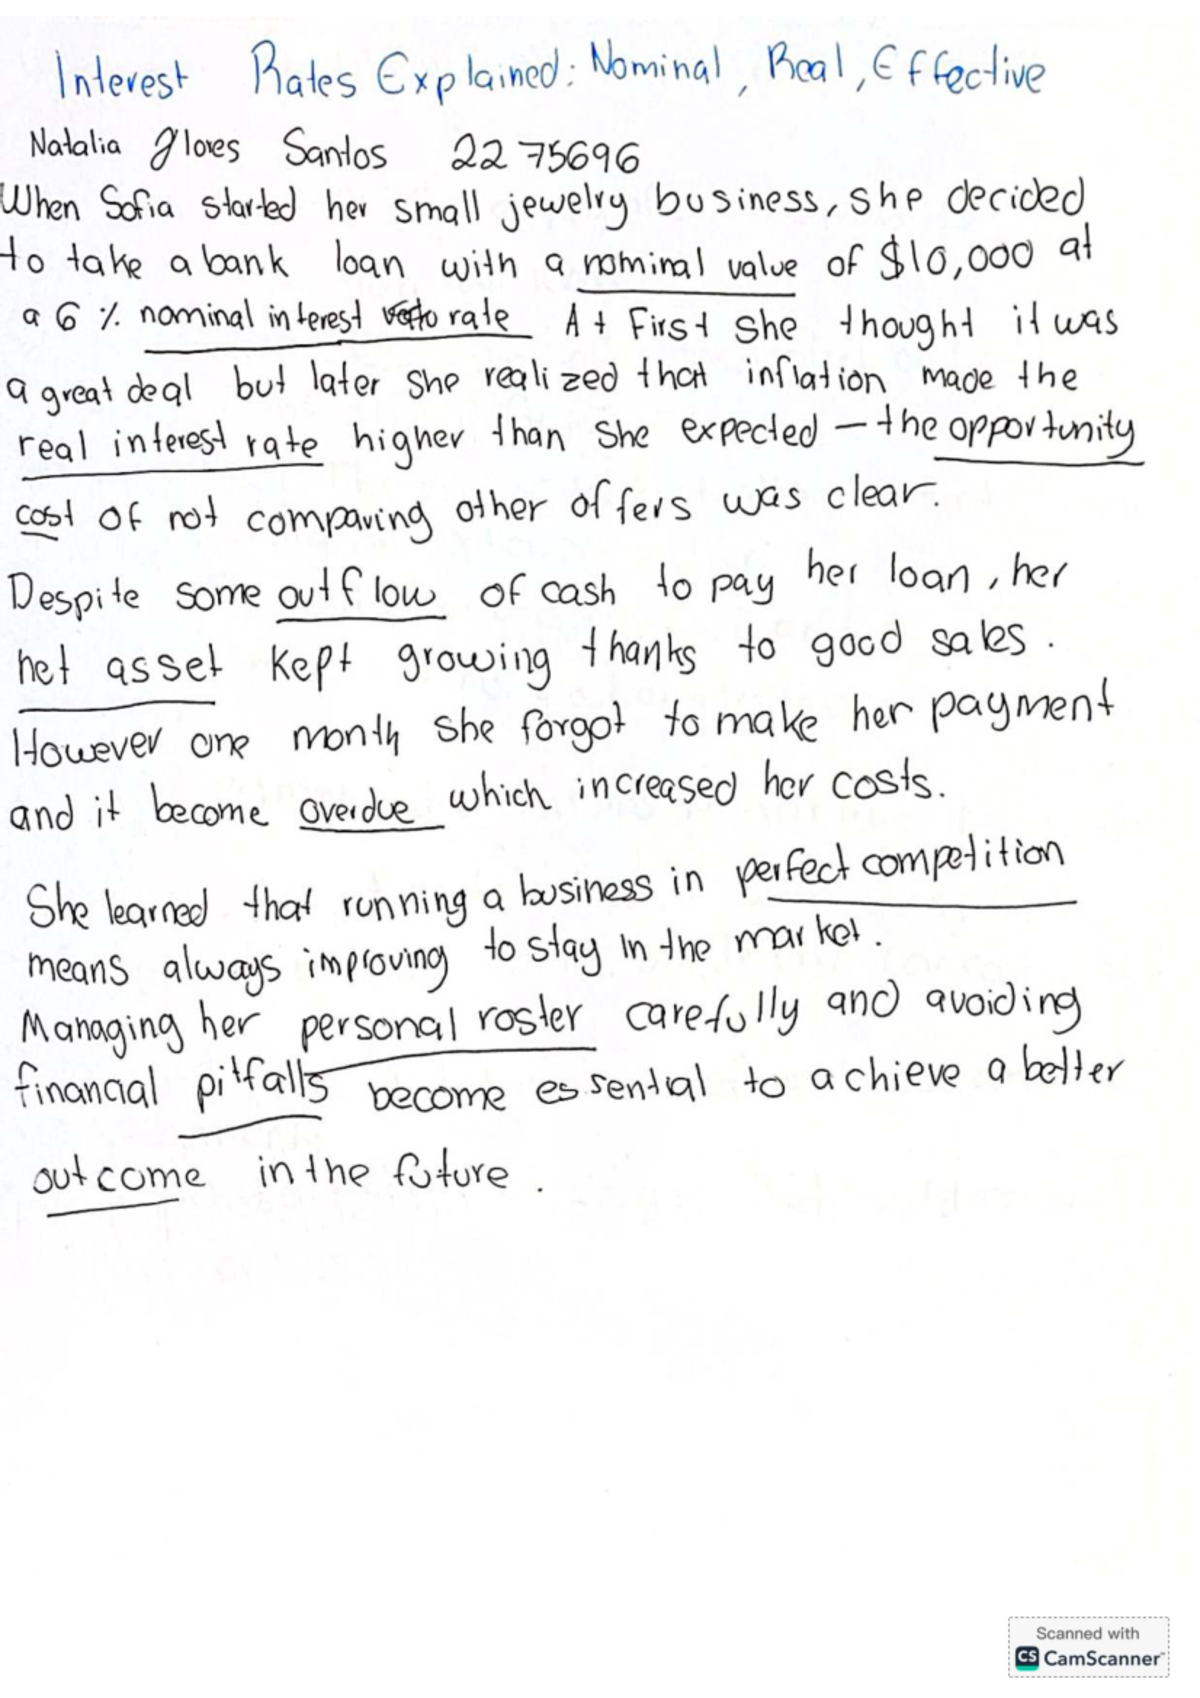 Interest Rates Explained: Nominal, Real, Effective
Natalia flores Santos 2275696
When Sofia started her small jewelry business, she decided
to take a bank loan with a nominal value of $10,000 at
a 6 % nominal interest rate At First she thought it was
a great deal but later she realized that inflation made the
real interest rate higher than she expected – the opportunity
cost of not comparing other offers was clear.
Despite some outflow of cash to pay her loan, her
net asset kept growing thanks to good sales.
However one month she forgot to make her payment
and it become overdue which increased her costs.
She learned that running a business in perfect competition
means always improving to stay in the market.
Managing her personal roster carefully and avoiding
financial pitfalls become essential to achieve a better
outcome in the future.
Scanned with
CS CamScanner